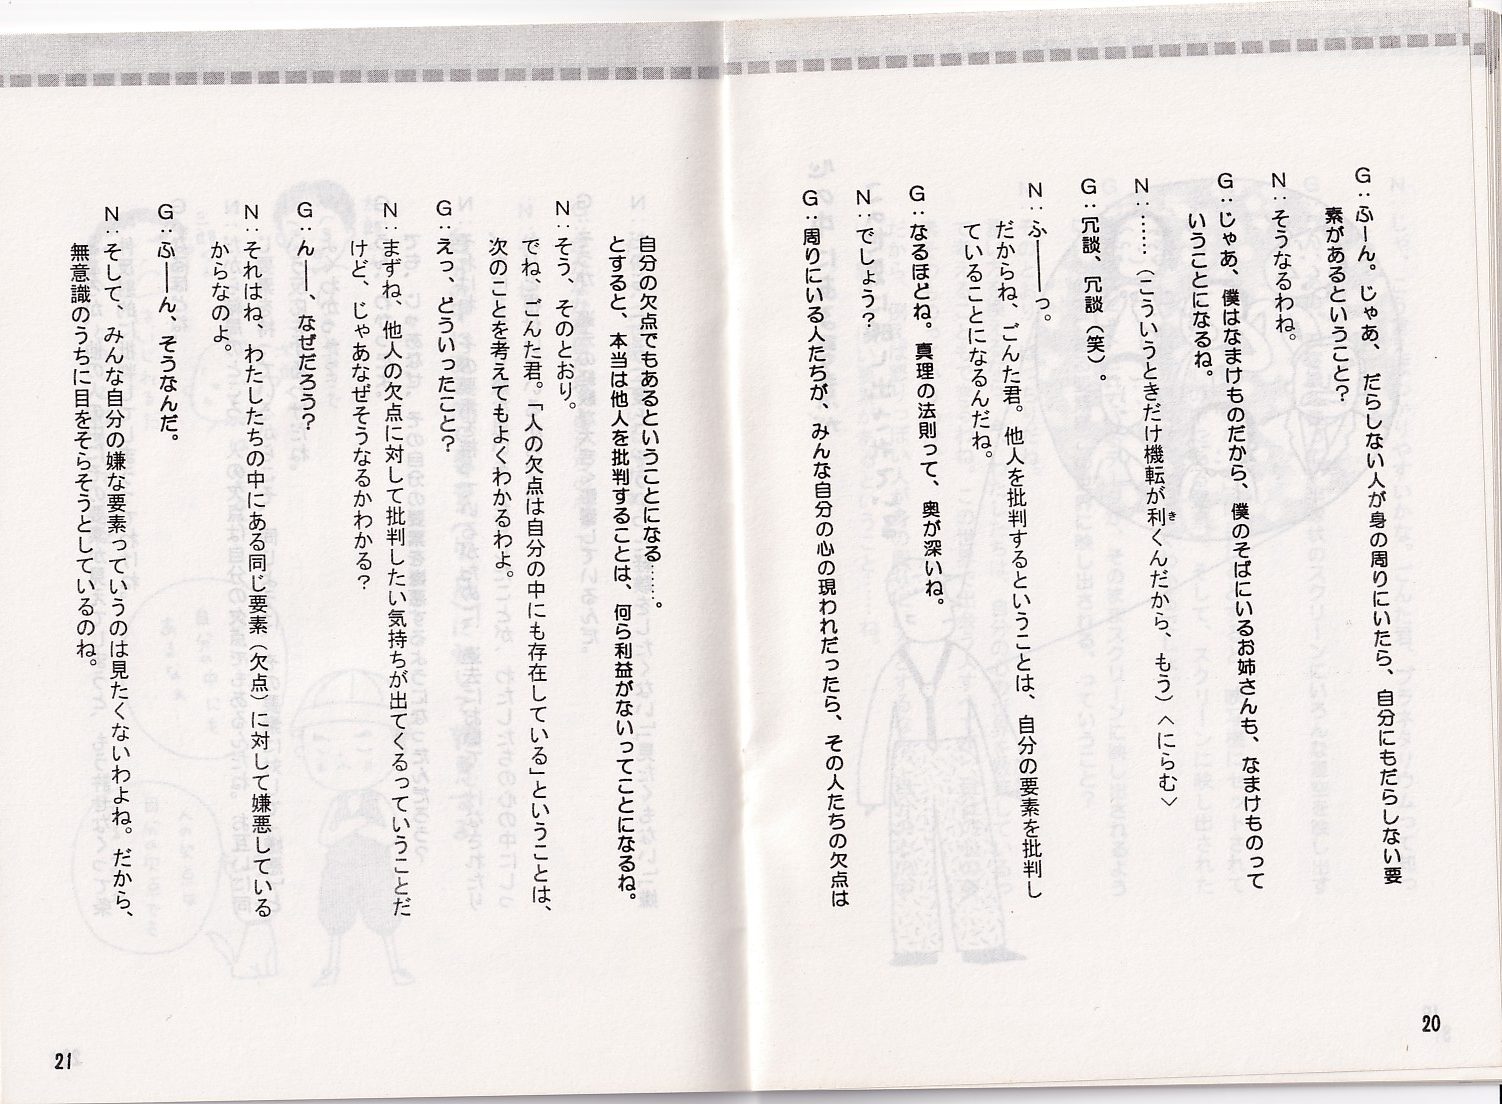 G：ふーん。じゃあ、だらしない人が身の周りにいたら、自分にもだらしない要
素があるということ？
N：そうなるわね。
G：じゃあ、僕はなまけものだから、僕のそばにいるお姉さんも、なまけものって
いうことになるね。
N：……（こういうときだけ機転が利くんだから、もう）＜にらむ＞
き
G：冗談、冗談（笑）。
N：ふ――っ。
だからね、ごんた君。他人を批判するということは、自分の要素を批判し
ていることになるんだね。
G：なるほどね。真理の法則って、奥が深いね。
N：でしょう？
G：周りにいる人たちが、みんな自分の心の現われだったら、その人たちの欠点は
20
自分の欠点でもあるということになる……。
とすると、本当は他人を批判することは、何ら利益がないってことになるね。
N：そう、そのとおり。
でね、ごんた君。「人の欠点は自分の中にも存在している」ということは、
次のことを考えてもよくわかるわよ。
G：えっ、どういったこと？
N：まずね、他人の欠点に対して批判したい気持ちが出てくるっていうことだ
けど、じゃあなぜそうなるかわかる？
G：ん――、なぜだろう？
N：それはね、わたしたちの中にある同じ要素（欠点）に対して嫌悪している
からなのよ。
G：ふ――ん、そうなんだ。
N：そして、みんな自分の嫌な要素っていうのは見たくないわよね。だから、
無意識のうちに目をそらそうとしているのね。
21